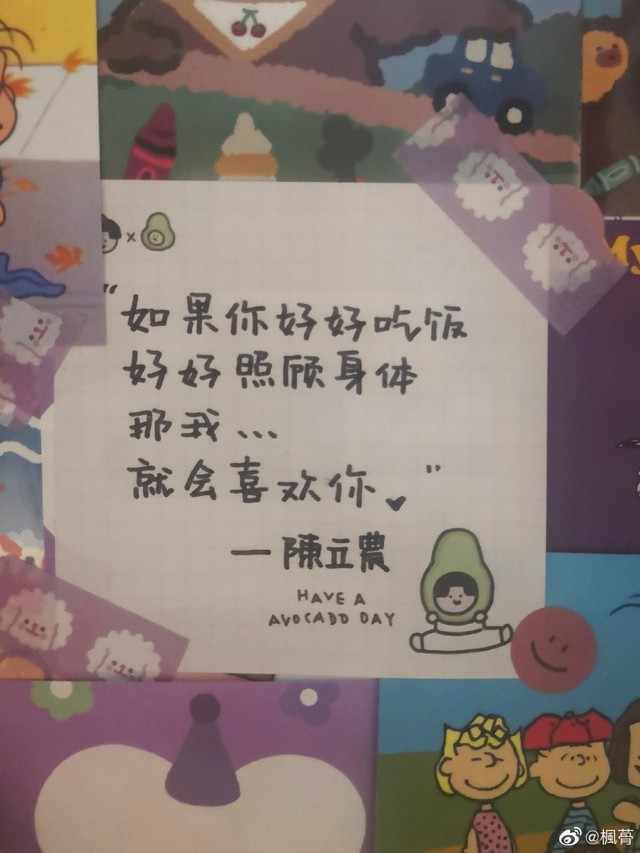 ×
“如果你好好吃饭
好好照顾身体
那我...
就会喜欢你”
一陳立農
HAVE A
AVOCADO DAY
My
@楓蒂